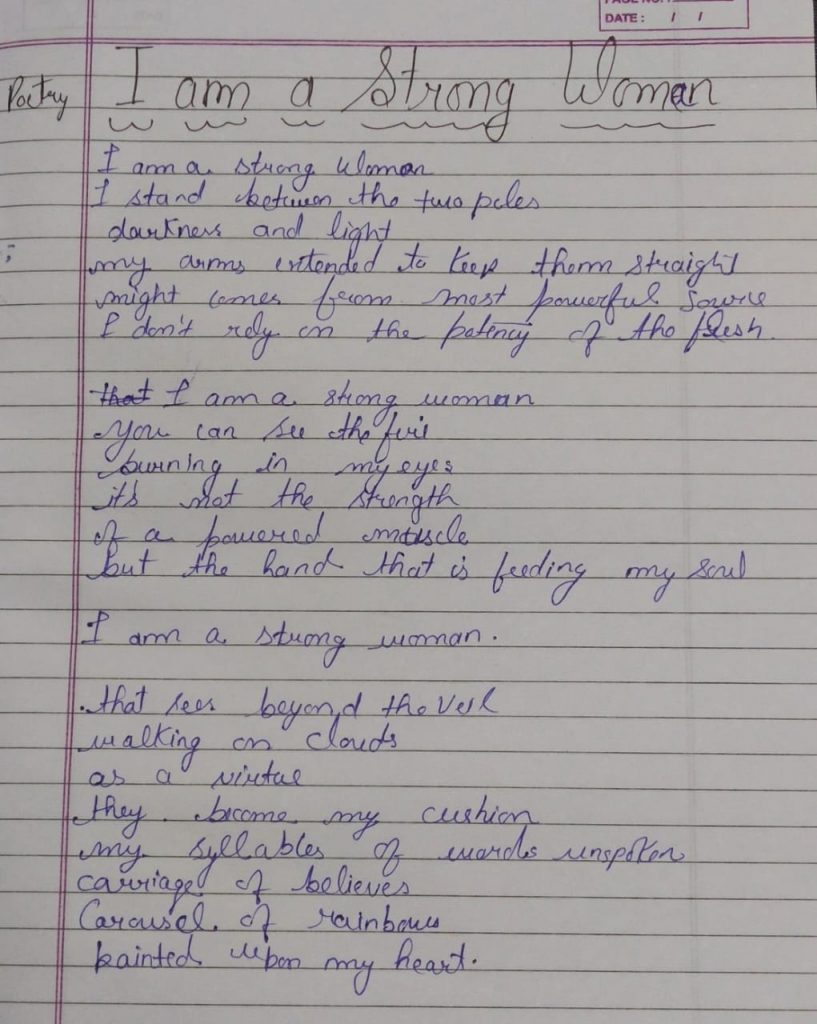 PAGE NO.:
DATE: / /
Poetry
I am a Strong Woman
I am a strong woman
I stand between the two poles
darkness and light
my arms extended to keep them straight
might comes from most powerful source
I don't rely on the potency of the flesh.
that I am a strong woman
you can see the fire
burning in my eyes
it's not the strength
of a powered muscle
but the hand that is feeding my soul
I am a strong woman.
that sees beyond the veil
walking on clouds
as a virtue
they become my cushion
my syllables of words unspoken
carriage of believes
Carousel of rainbows
painted upon my heart.